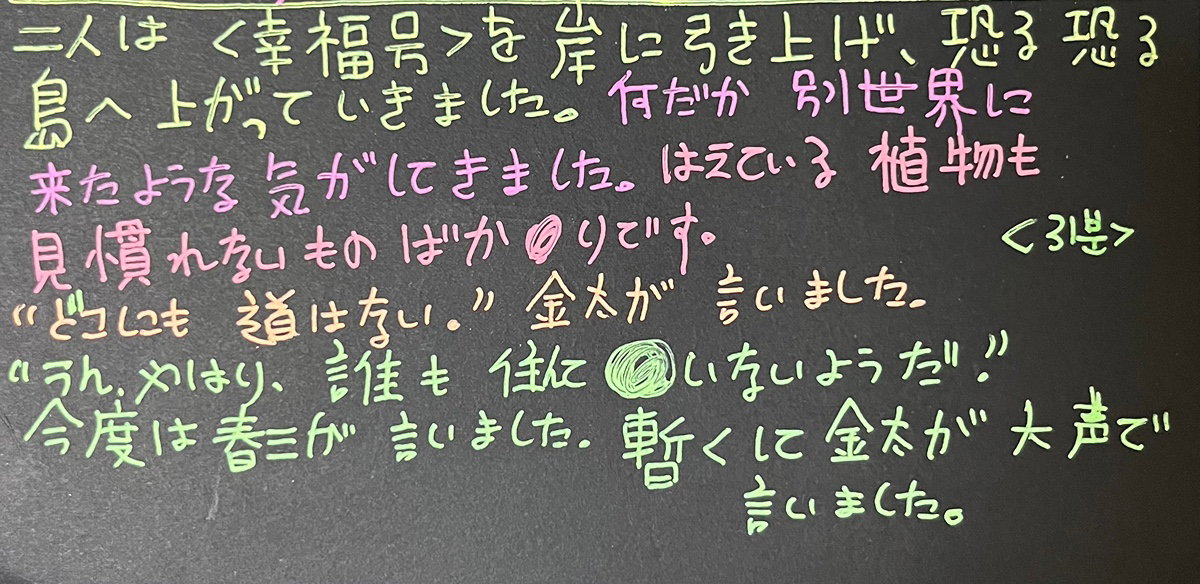 二人は <幸福号>を 岸に引き上げ、恐る恐る
島へ上がっていきました。何だか 別世界に
来たような気がしてきました。はえている 植物も
見慣れないもの ばかりです。
<31分>
“どこにも 道はない。” 金太が 言いました。
“うん、やはり、誰も 住んでいないようだ。”
今度は春三が 言いました。暫くして 金太が 大声で
言いました。